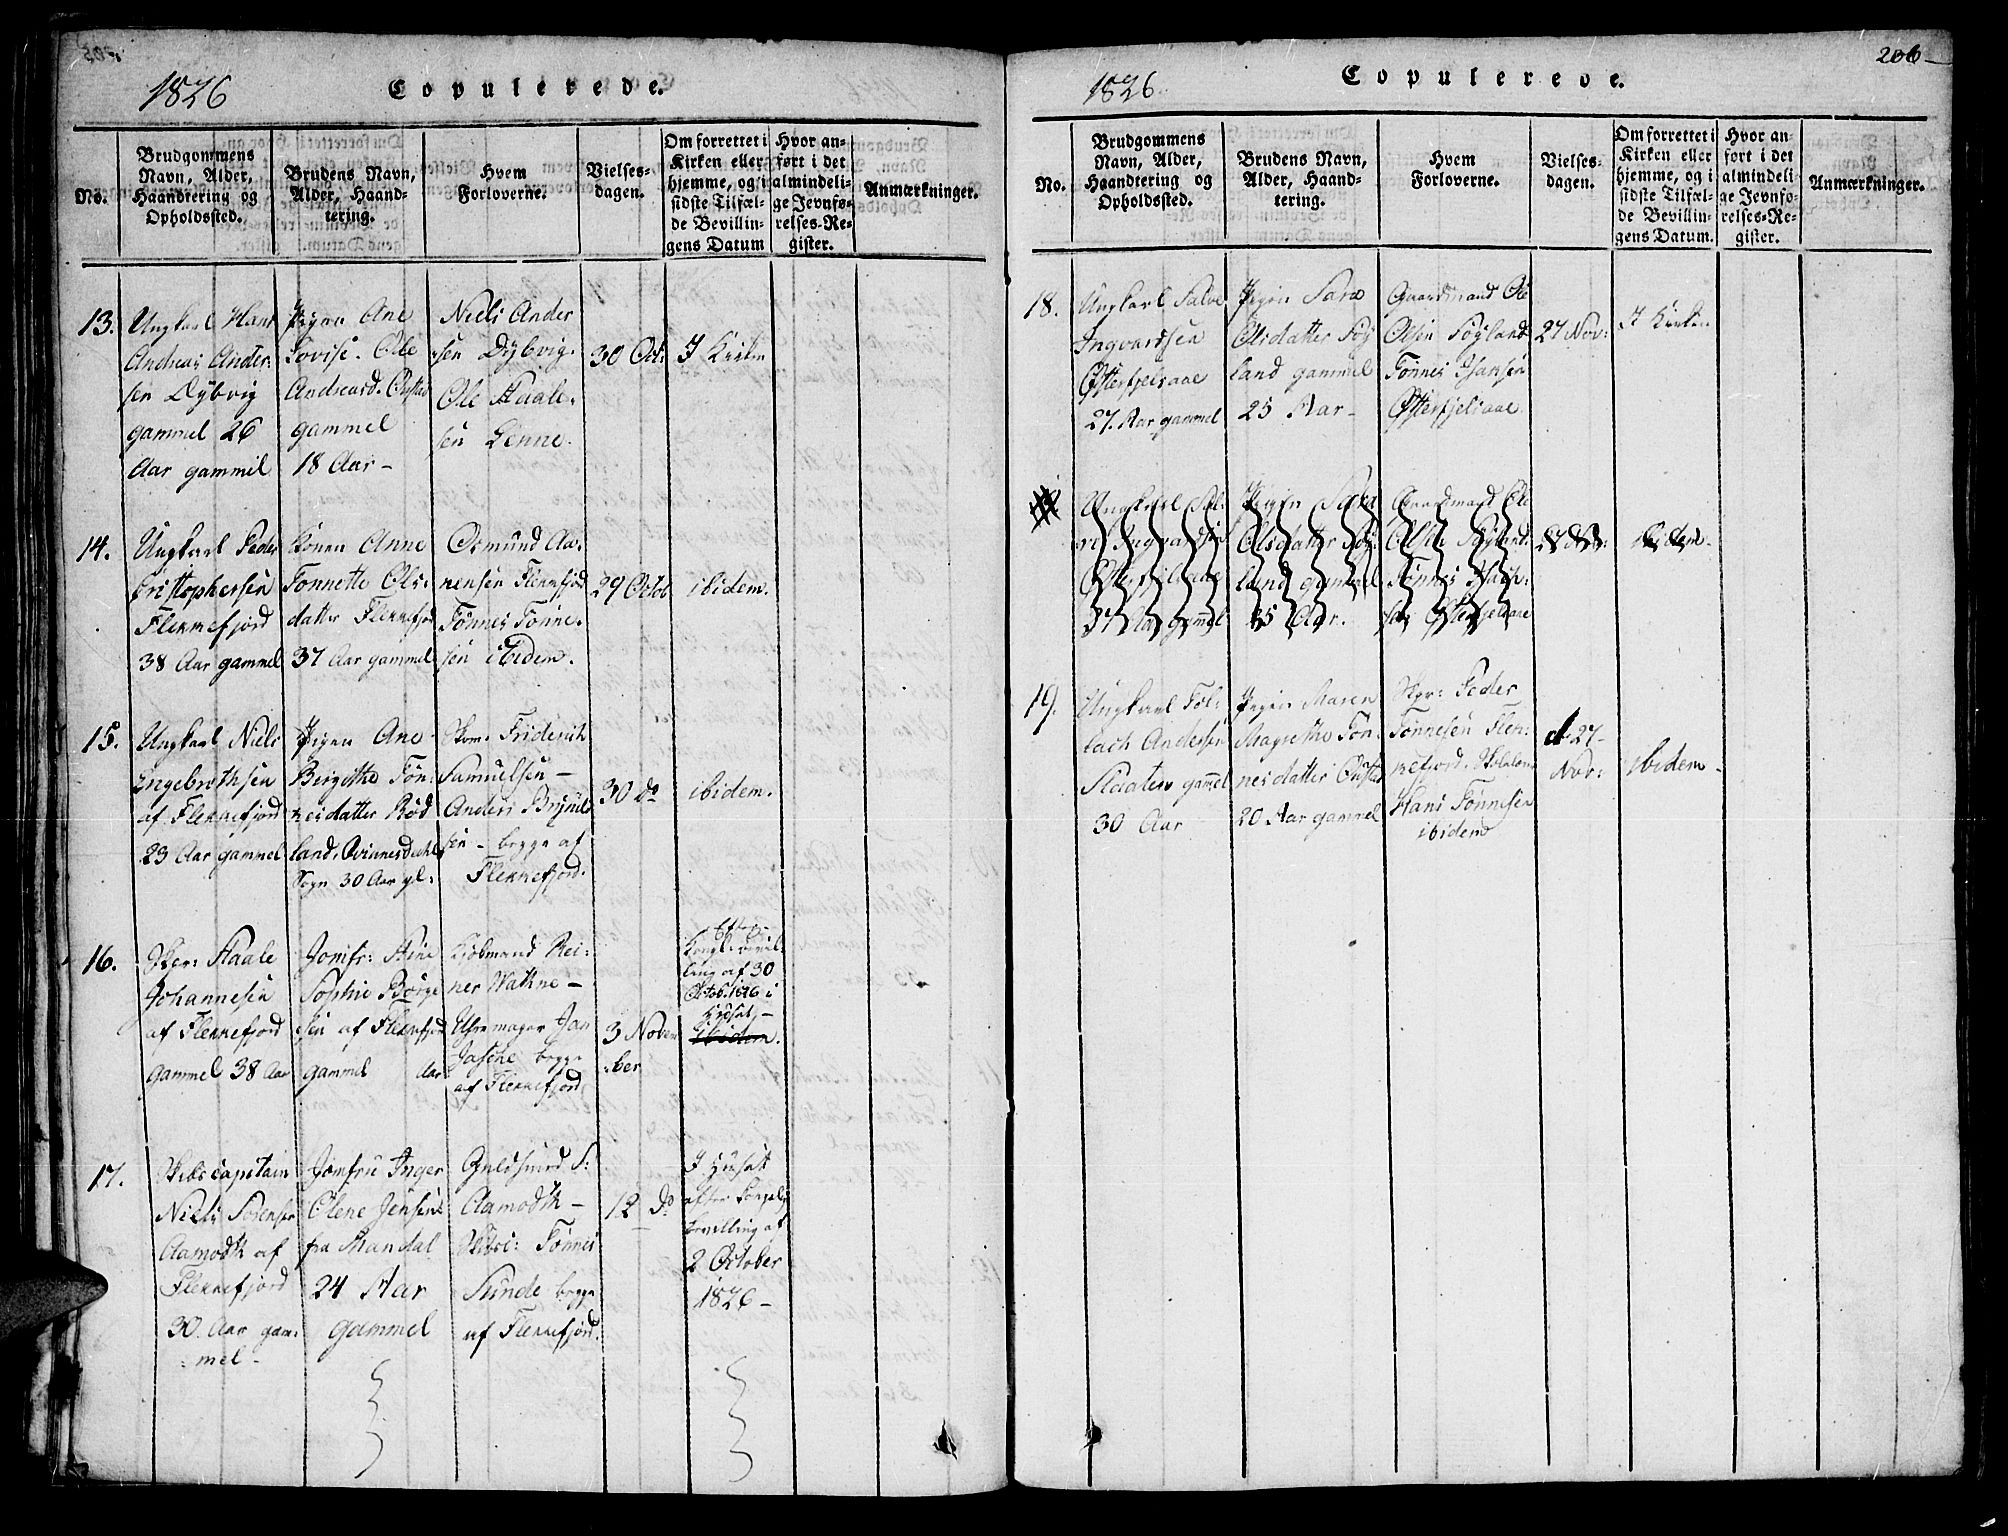 1826
Copulerede.
No.
Brudgommens
Navn, Alder,
Haandtering og
Opholdssted.
Brudens Navn,
Alder, Haand-
tering.
Hvem
Forloverne.
Vielses-
dagen.
Om forrettet i
Kirken eller
hjemme, og i
sidste Tilfæl-
de Bevillin-
gens Datum
Hvor an-
ført i det
almindeli-
ge Jevnfø-
relses-Re-
gister.
Anmærkninger.
13.
Ungkarl Hans
Andreas Ander-
sen Dybvig
gammel 26
Aar gammel
Pigen Ane
Lovise. Ole
Andreasd.
gammel
18 Aar -
Niels Ander
sen Dybvig.
Ole Staale-
sen Lenne.
30 Oct:
I Kirken
14.
Ungkarl Peder
Cristophersen
Flekkefjord
38 Aar gammel
Konen Anne
Tonnette Ols-
datter Flekkefjord
37 Aar gammel
Osmund Aa-
nensen Flekkefjord
Tønnes Tønne-
sen ibidem.
29 Octob
ibidem.
15.
Ungkarl Niels
Engebrethsen
af Flekkefjord
23 Aar gammel
Pigen Ane
Bergithe Tøn-
nesdatter Rød
land, Qvinnesdahls
Sogn 30 Aar gl:
Skom. Friderich
Samuelsen -
Anders
sen - begge af
Flekkefjord.
30 do
ibidem.
16.
Skpr: Staale
Johannesen
af Flekkefjord
gammel 38 Aar
Jomfr: Stine
Sophie Børge
sen af Flekkefjord
gammel Aar
Kjøbmand Rei-
ner Wathne -
Uhrmager Jan
Jasche begge
af Flekkefjord
3 Novem
-ber
efter
Kongl: bevil-
ling af 30
Octob. 1826 i
Huset -
ibidem.
17.
Skibscapitain
Niels Sørensen
Aamodth af
Flekkefjord
30. Aar gam-
mel -
Jomfru Inger
Olene Jensens
fra Mandal
24 Aar
gammel
Guldsmed S:
Aamodth -
Skibsc: Tønnes
Sunde begge
af Flekkefjord.
12 do
I Huset
efter Kongelig
bevilling af
2 October
1826 -
206
1826.
Copulerede.
No.
Brudgommens
Navn, Alder,
Haandtering og
Opholdssted.
Brudens Navn,
Alder, Haand-
tering.
Hvem
Forloverne.
Vielses-
dagen.
Om forrettet i
Kirken eller
hjemme, og i
sidste Tilfæl-
de Bevillin-
gens Datum.
Hvor an-
ført i det
almindeli-
ge Jevnfø-
relses-Re-
gister.
Anmærkninger.
18.
Ungkarl Salve
Ingvardsen
Østerfjelsaae
27. Aar gammel
Pigen Sara
Olsdatter Søy
land gammel
25 Aar -
Gaardmand Ole
Olsen Søyland
Tønnes Hansen
Østerfjelsaae.
27 Nov:
I Kirken
Ungkarl Sal-
ve Ingvardsen
Østerfjelsaae
27 Aar gammel
Pigen Sara
Olsdatter Søy-
land gammel
25 Aar.
Gaardmand Ole
Olsen Søyland
Tønnes Han-
sen Østerfjelsaae
27 Nov:
ibidem.
19.
Ungkarl Tol-
lach Andersen
gammel
30 Aar
Pigen Maren
Magrethe Tøn-
nesdatter
20 Aar gammel
Skpr: Peder
Tønnesen Flek-
kefjord.
Hans Tønnesen
ibidem
d. 27
Nov:
Ibidem -